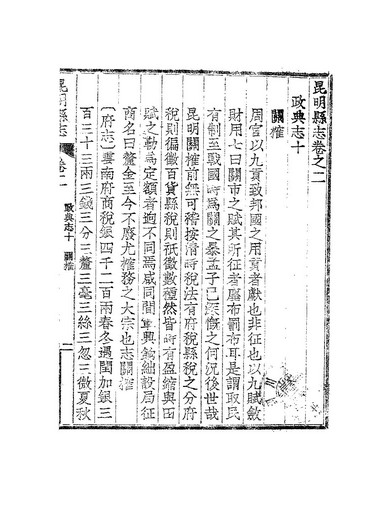 昆明縣志卷之二
政典志十
關榷
周官以九貢致邦國之用貢者獻也非征也以九賦斂
財用七曰關市之賦其所征者屬布罰布耳是謂取民
有制至戰國時為關之暴孟子已深慨之何況後世哉
昆明縣關榷前無可稽按清時稅法有府稅縣稅之分府
稅則徧徵百貨縣稅則祇徵數種然皆時有盈縮與田
賦之勒為定額者逈不同焉咸同間軍興餉絀設局征
商名曰釐金至今不廢尤榷務之大宗也志關榷
〔府志〕雲南府商稅銀四千二百兩春冬遇閏加銀三
百三十三兩三錢三分三釐三毫三絲三忽三微夏秋
昆明縣志
卷二
政典志十 關榷
一